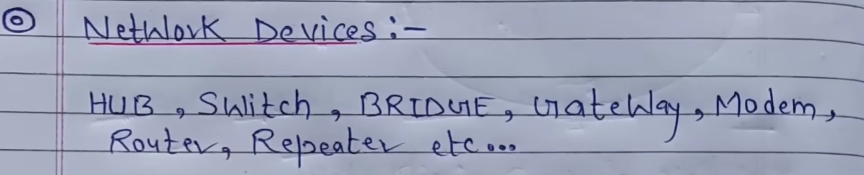 Network Devices :-
HUB, Switch, BRIDGE, Gateway, Modem,
Router, Repeater etc...